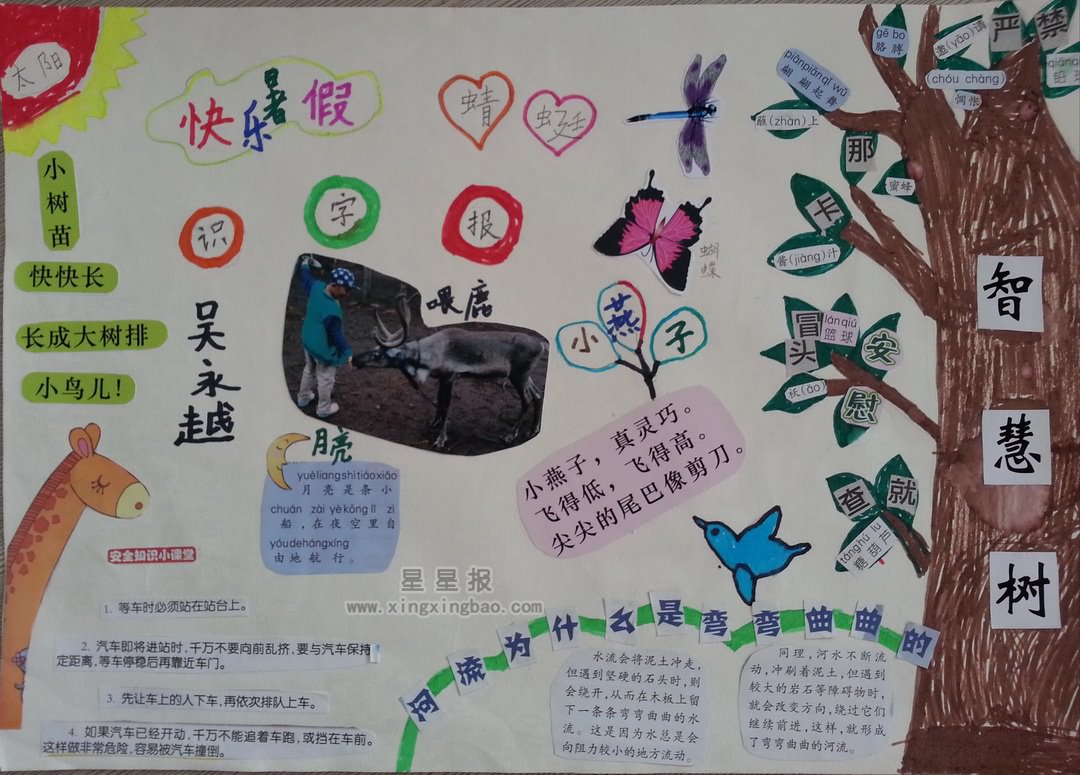 太阳
快乐暑假
蜻
蜓
识
字
报
小树苗
快快长
长成大树排
小鸟儿！
吴永越
喂鹿
蝴蝶
小燕子
小燕子，真灵巧。
飞得低，飞得高。
尖尖的尾巴像剪刀。
月亮
yuèliangshìtiáoxiǎo
月亮是条小
chuán zài yèkōnglǐ zì
船，在夜空里自
yóudehángxíng
由地航行。
安全知识小课堂
1. 等车时必须站在站台上。
2. 汽车即将进站时，千万不要向前乱挤，要与汽车保持一
定距离，等车停稳后再靠近车门。
3. 先让车上的人下车，再依次排队上车。
4. 如果汽车已经开动，千万不能追着车跑，或挡在车前。
这样做非常危险，容易被汽车撞倒。
星星报
www.xingxingbao.com
河流为什么是弯弯曲曲的
水流会将泥土冲走，
但遇到坚硬的石头时，则
会绕开，从而在木板上留
下一条条弯弯曲曲的水
流。这是因为水总是会
向阻力较小的地方流动。
同理，河水不断流
动，冲刷着泥土，但遇到
较大的岩石等障碍物时，
就会改变方向，绕过它们
继续前进，这样，就形成
了弯弯曲曲的河流。
gē bo
胳膊
邀(yāo)请
严
禁
chóu chàng
惆怅
piānpiānqǐ wǔ
翩翩起舞
蘸(zhàn)上
那
蜜蜂
卡
酱(jiàng)汁
冒
头
lán qiú
篮球
安
慰
袄(ǎo)
查
就
táng hú lu
糖葫芦
智
慧
树